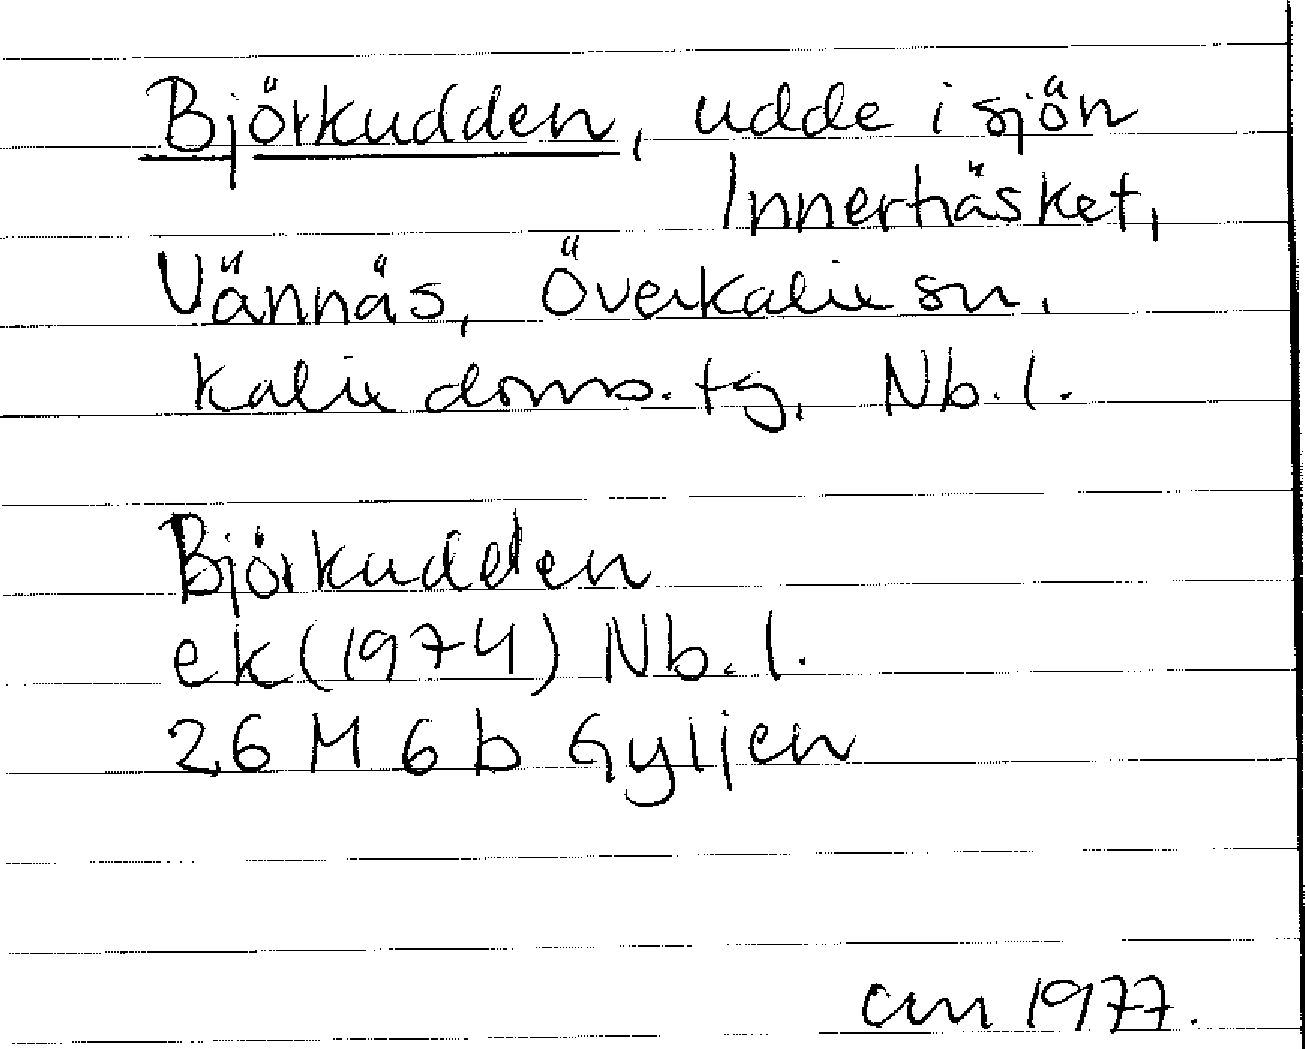 Björkudden, udde i sjön
Innerträsket,
Vännäs, Överkalix sn,
Kalix doms. tg, Nb. l.
Björkudden
ek (1974) Nb. l.
26 M 6 b Gyljen
cm 1977.